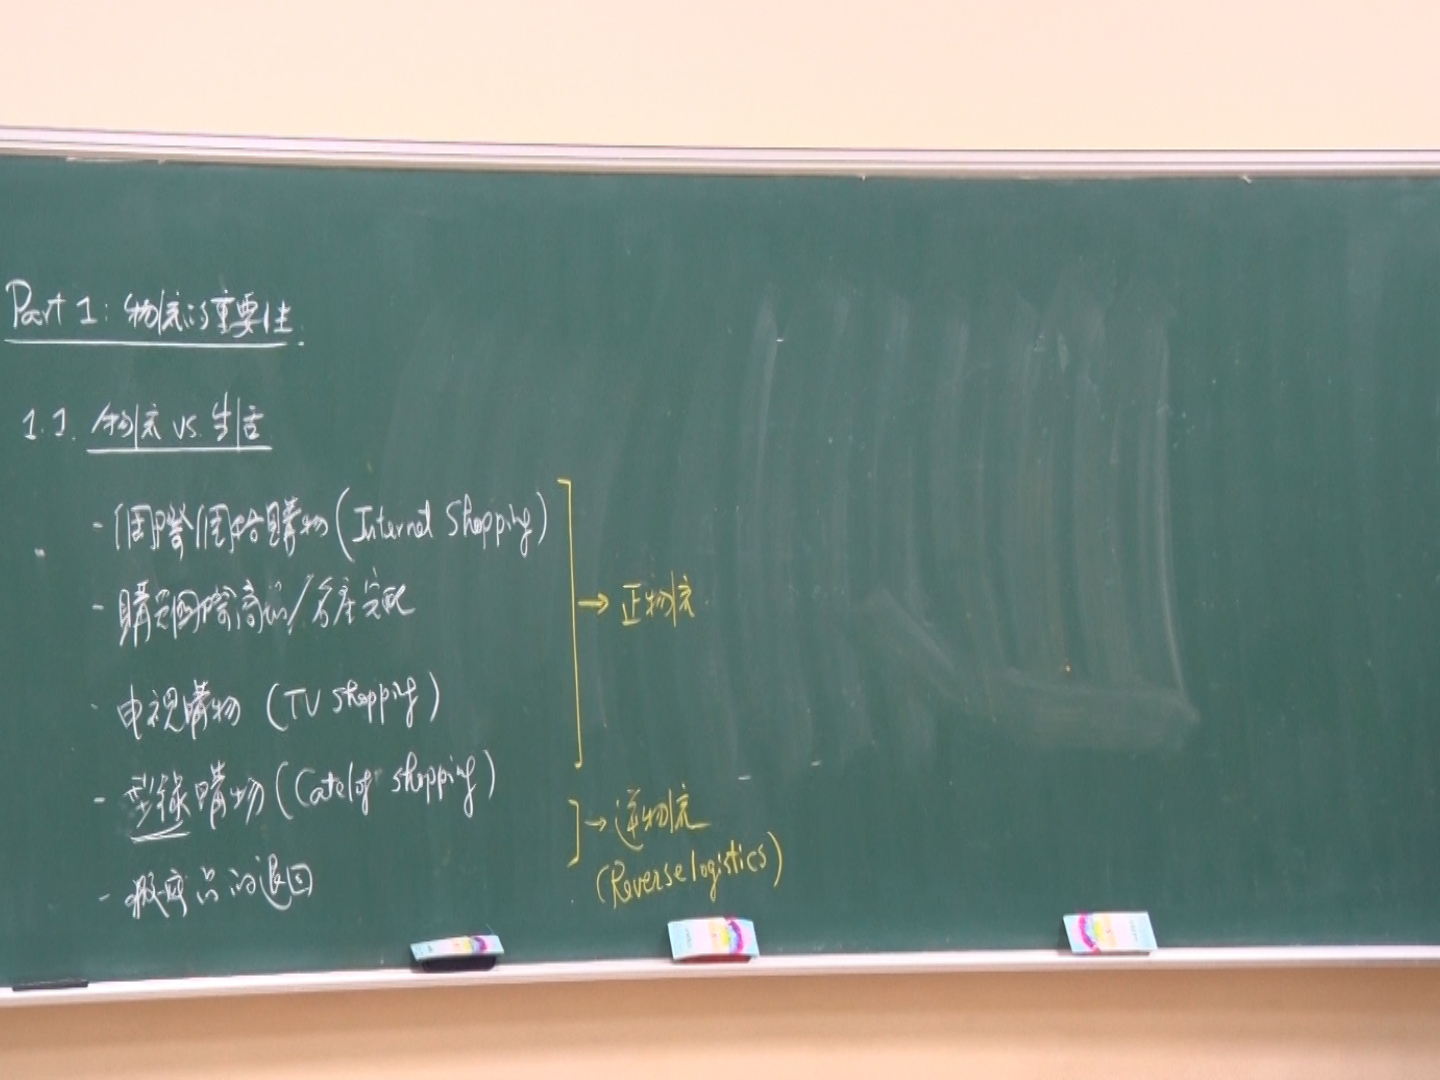 Part 1: 物流的重要性
1.1. 物流 vs. 生活
- 網際網路購物 (Internet Shopping)
- 購買國際商品/名產宅配
- 电視購物 (TV shopping)
- 型錄購物 (Catelog shopping)
- 瑕疵品的退回
→ 正物流
→ 逆物流
(Reverse logistics)